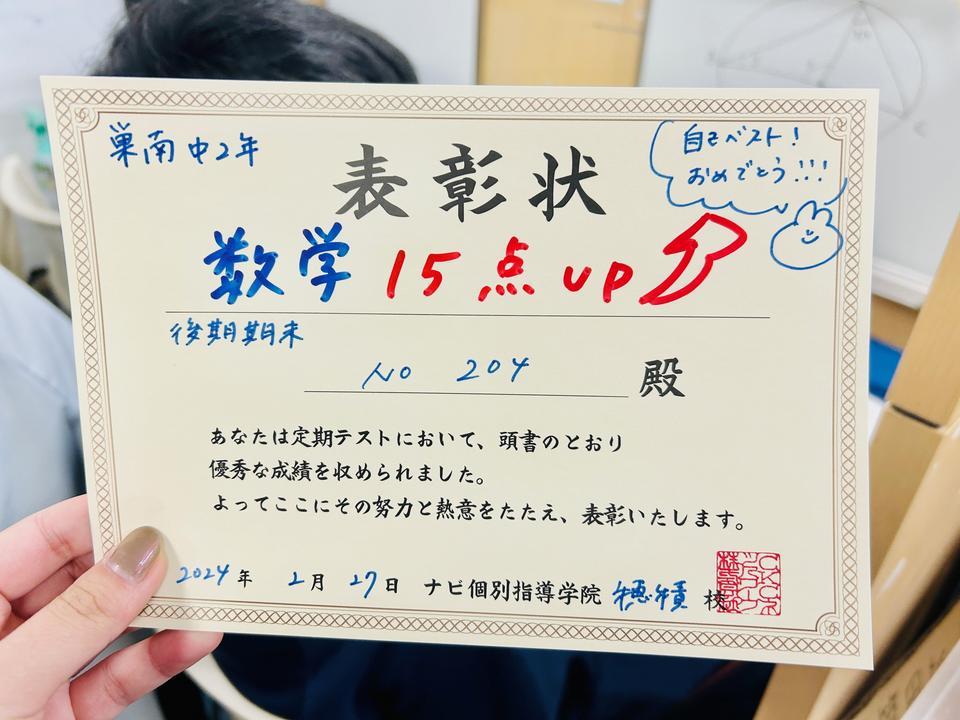 巣南中2年
自己ベスト!
おめでとう!!!
表彰状
数学 15点UP
後期期末
No 204 殿
あなたは定期テストにおいて、頭書のとおり
優秀な成績を収められました。
よってここにその努力と熱意をたたえ、表彰いたします。
2024年 2月 27日 ナビ個別指導学院 穂積 校